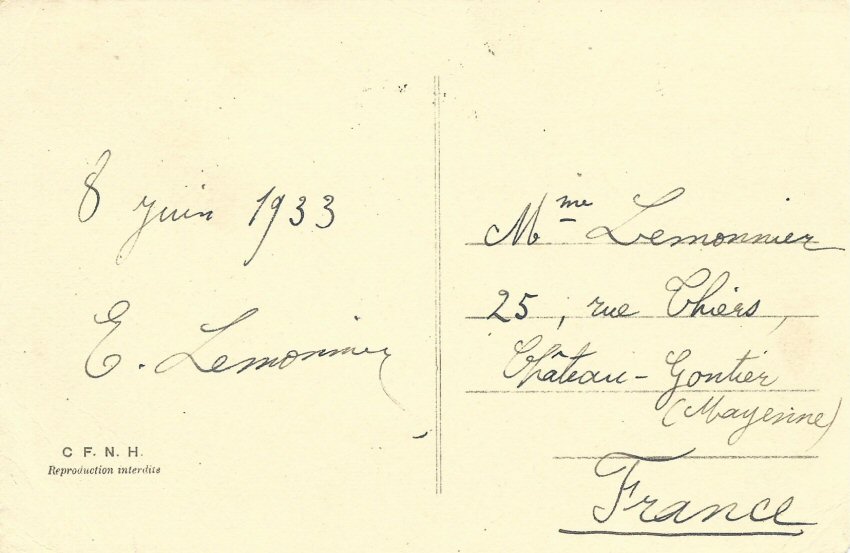 8 juin 1933
E. Lemonnier
C F. N. H.
Reproduction interdite
Mme Lemonnier
25, rue Thiers,
Château-Gontier
(Mayenne)
France